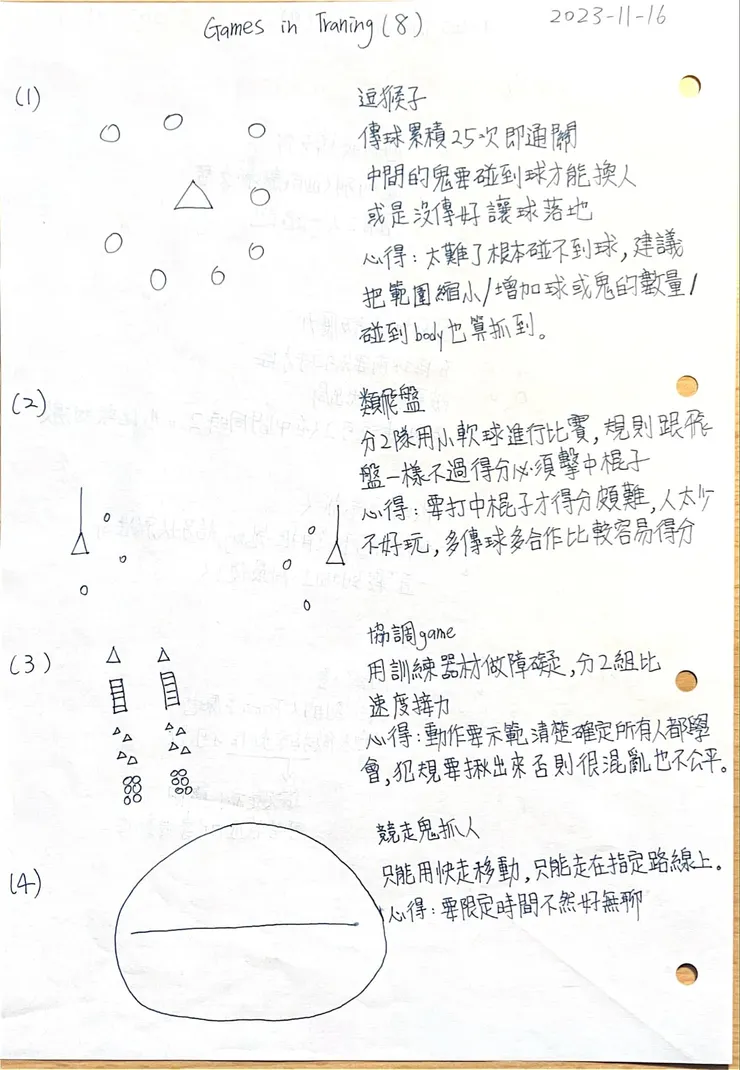 Games in Traning (8)
2023-11-16
(1)
逗猴子
傳球累積25次即通關
中間的鬼要碰到球才能換人
或是沒傳好讓球落地
心得：太難了根本碰不到球，建議
把範圍縮小/增加球或鬼的數量/
碰到body也算抓到。
(2)
類飛盤
分2隊用小軟球進行比賽，規則跟飛
盤一樣不過得分必須擊中棍子
心得：要打中棍子才得分頗難，人太少
不好玩，多傳球多合作比較容易得分
(3)
協調game
用訓練器材做障礙，分2組比
速度接力
心得：動作要示範清楚確定所有人都學
會，犯規要揪出來否則很混亂也不公平。
(4)
競走鬼抓人
只能用快走移動，只能走在指定路線上。
心得：要限定時間不然好無聊